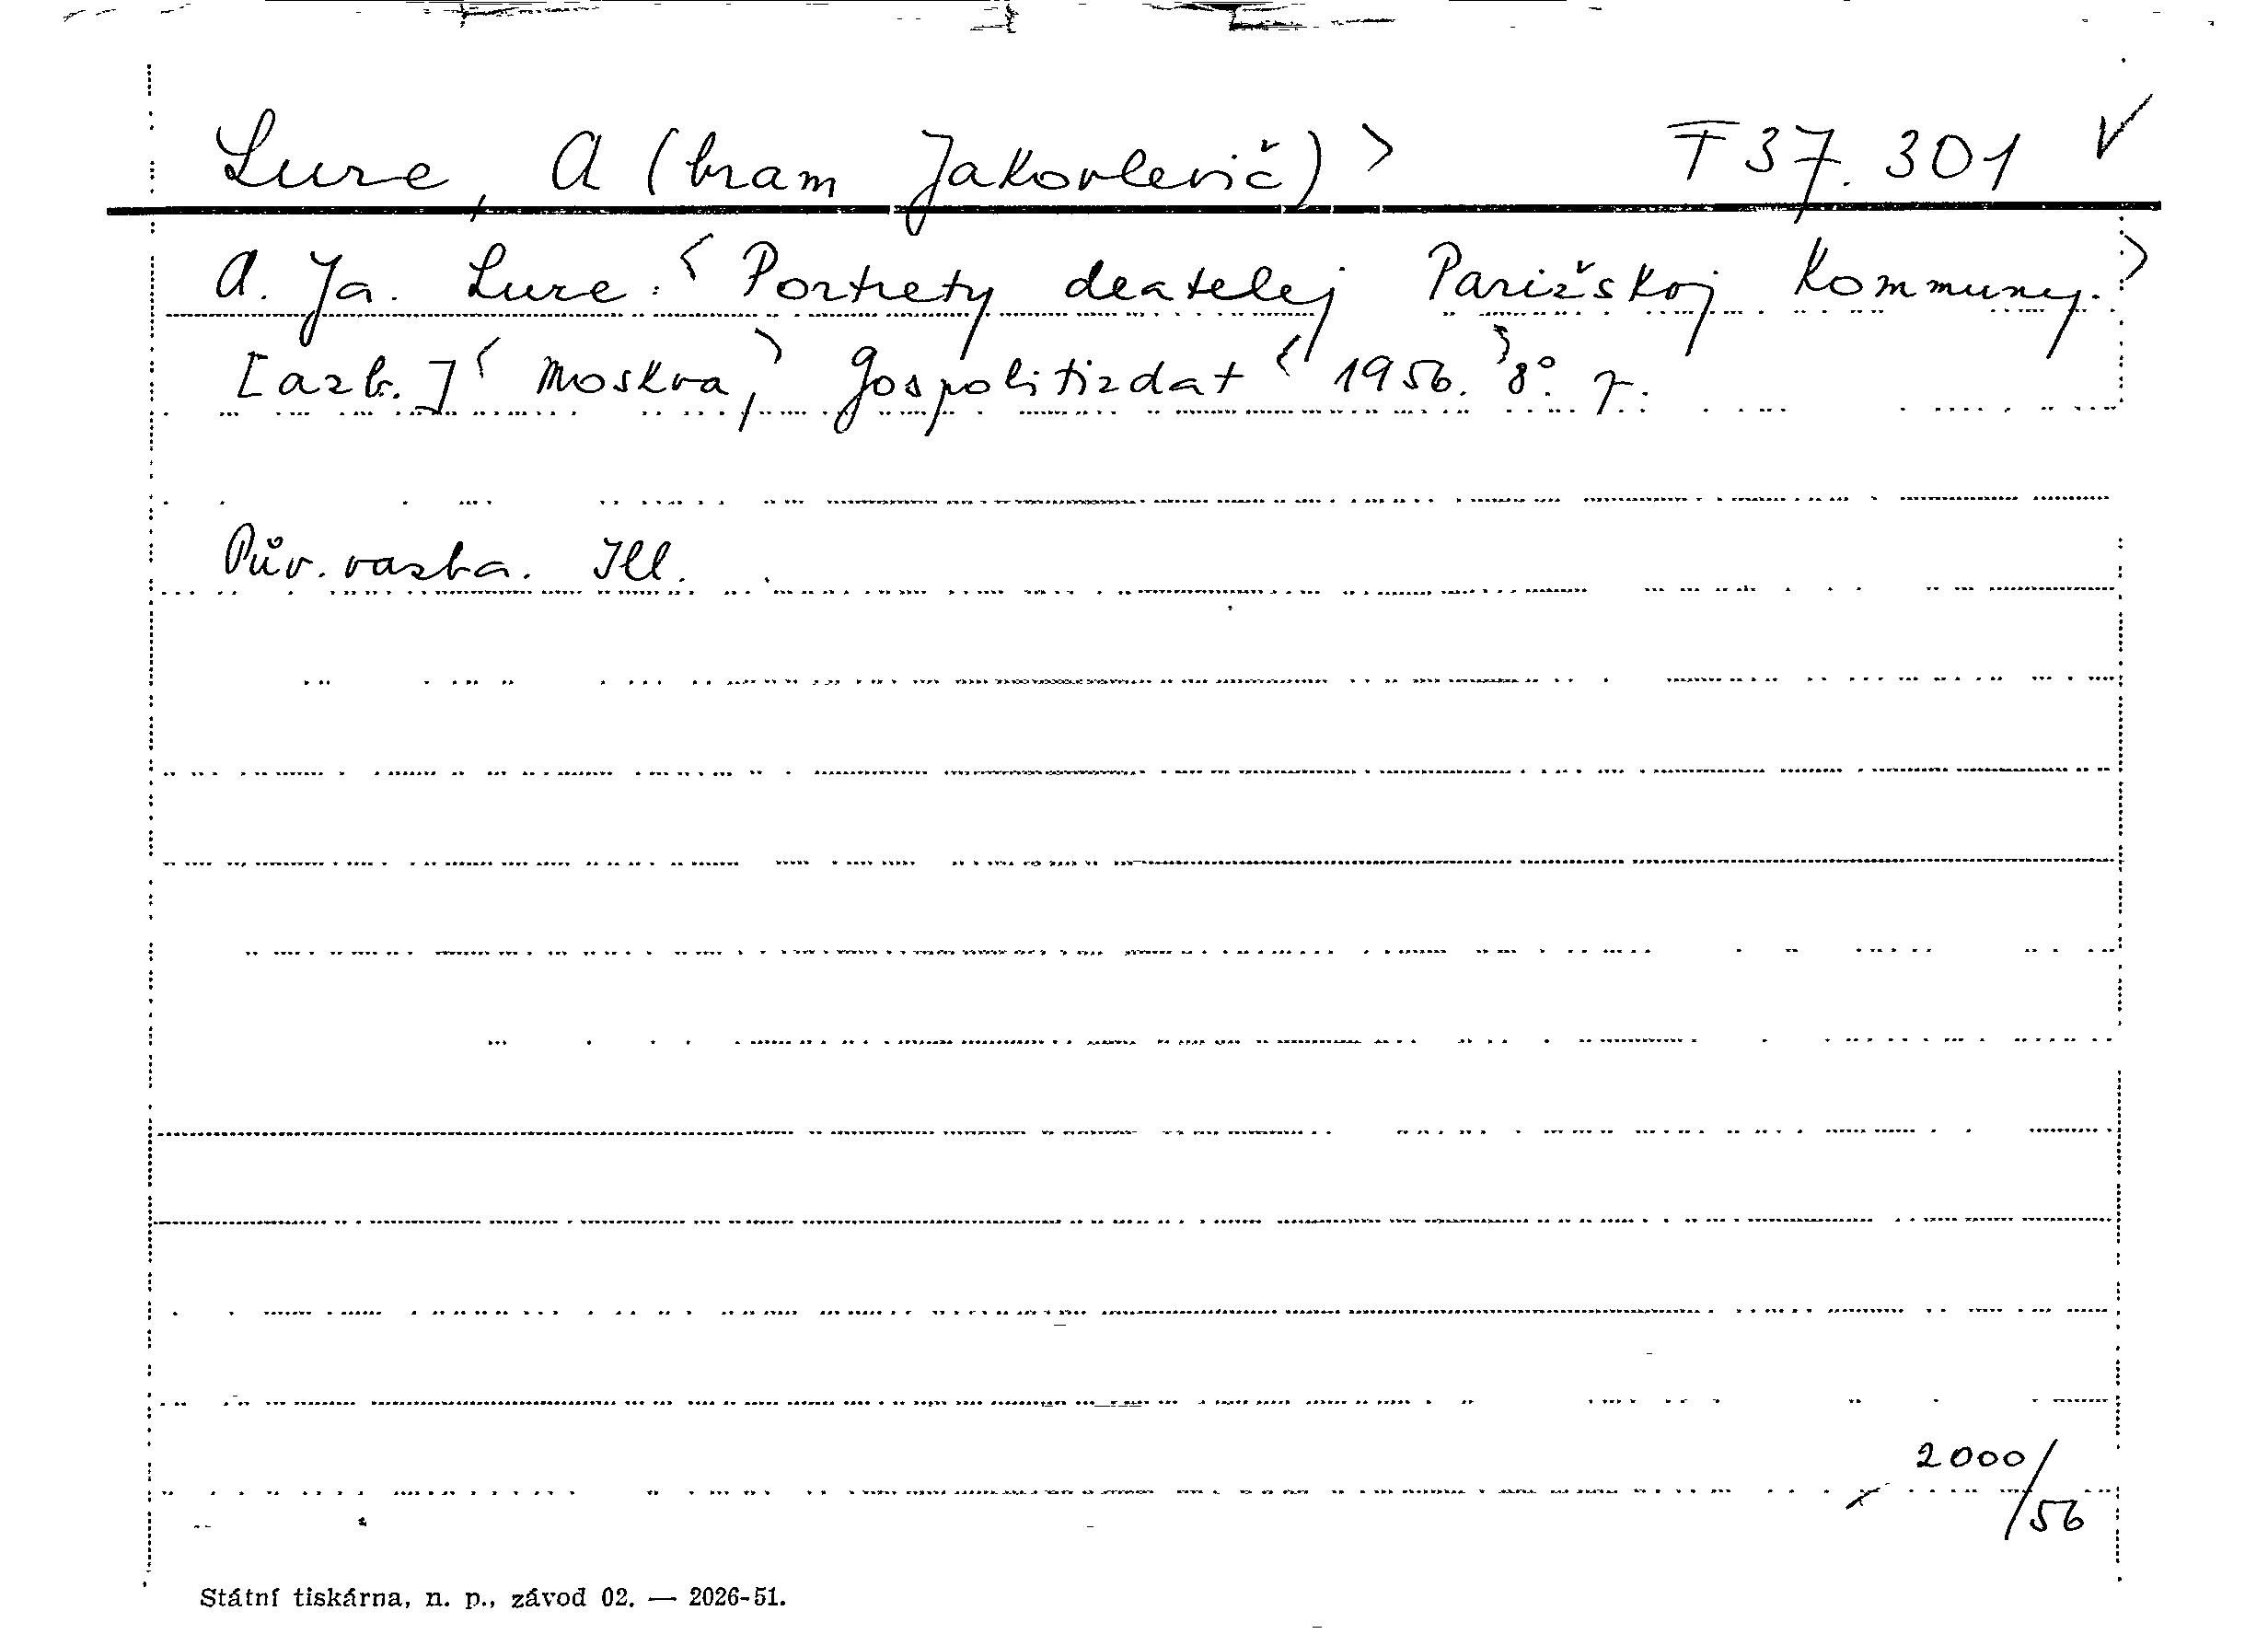 Lure, A (bram Jakovlevič) > T 37.301 V
A. Ja. Lure: < Portrety deatelej Parižskoj Kommuny. >
[azb.] < Moskva, > Gospolitizdat < 1956. > 8°. r.
Pův. vazba. Ill.
2000/56
Státní tiskárna, n. p., závod 02. — 2026-51.